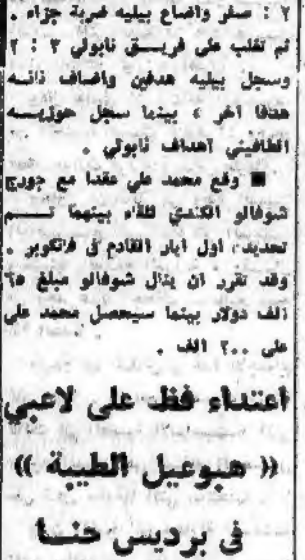 ٢ : صفر واضاع بيليه ضربة جزاء .
ثم تغلب على فريق نابولي ٣ : ٢
وسجل بيليه هدفين واضاف ذاته
هدفا آخر ، بينما سجل جوزيه
الطافيني اهداف نابولي .
■ وقع محمد علي عقدا مع جورج
شوفالو الكندي للقاء بينهما تم
تحديد، اول ايار القادم في فانكوبر .
وقد تقرر ان ينال شوفالو مبلغ ٦٥
الف دولار بينما سيحصل محمد علي
على ٢٠٠ الف .
اعتداء فظ على لاعبي
(( هبوعيل الطيبة ))
في برديس حنا